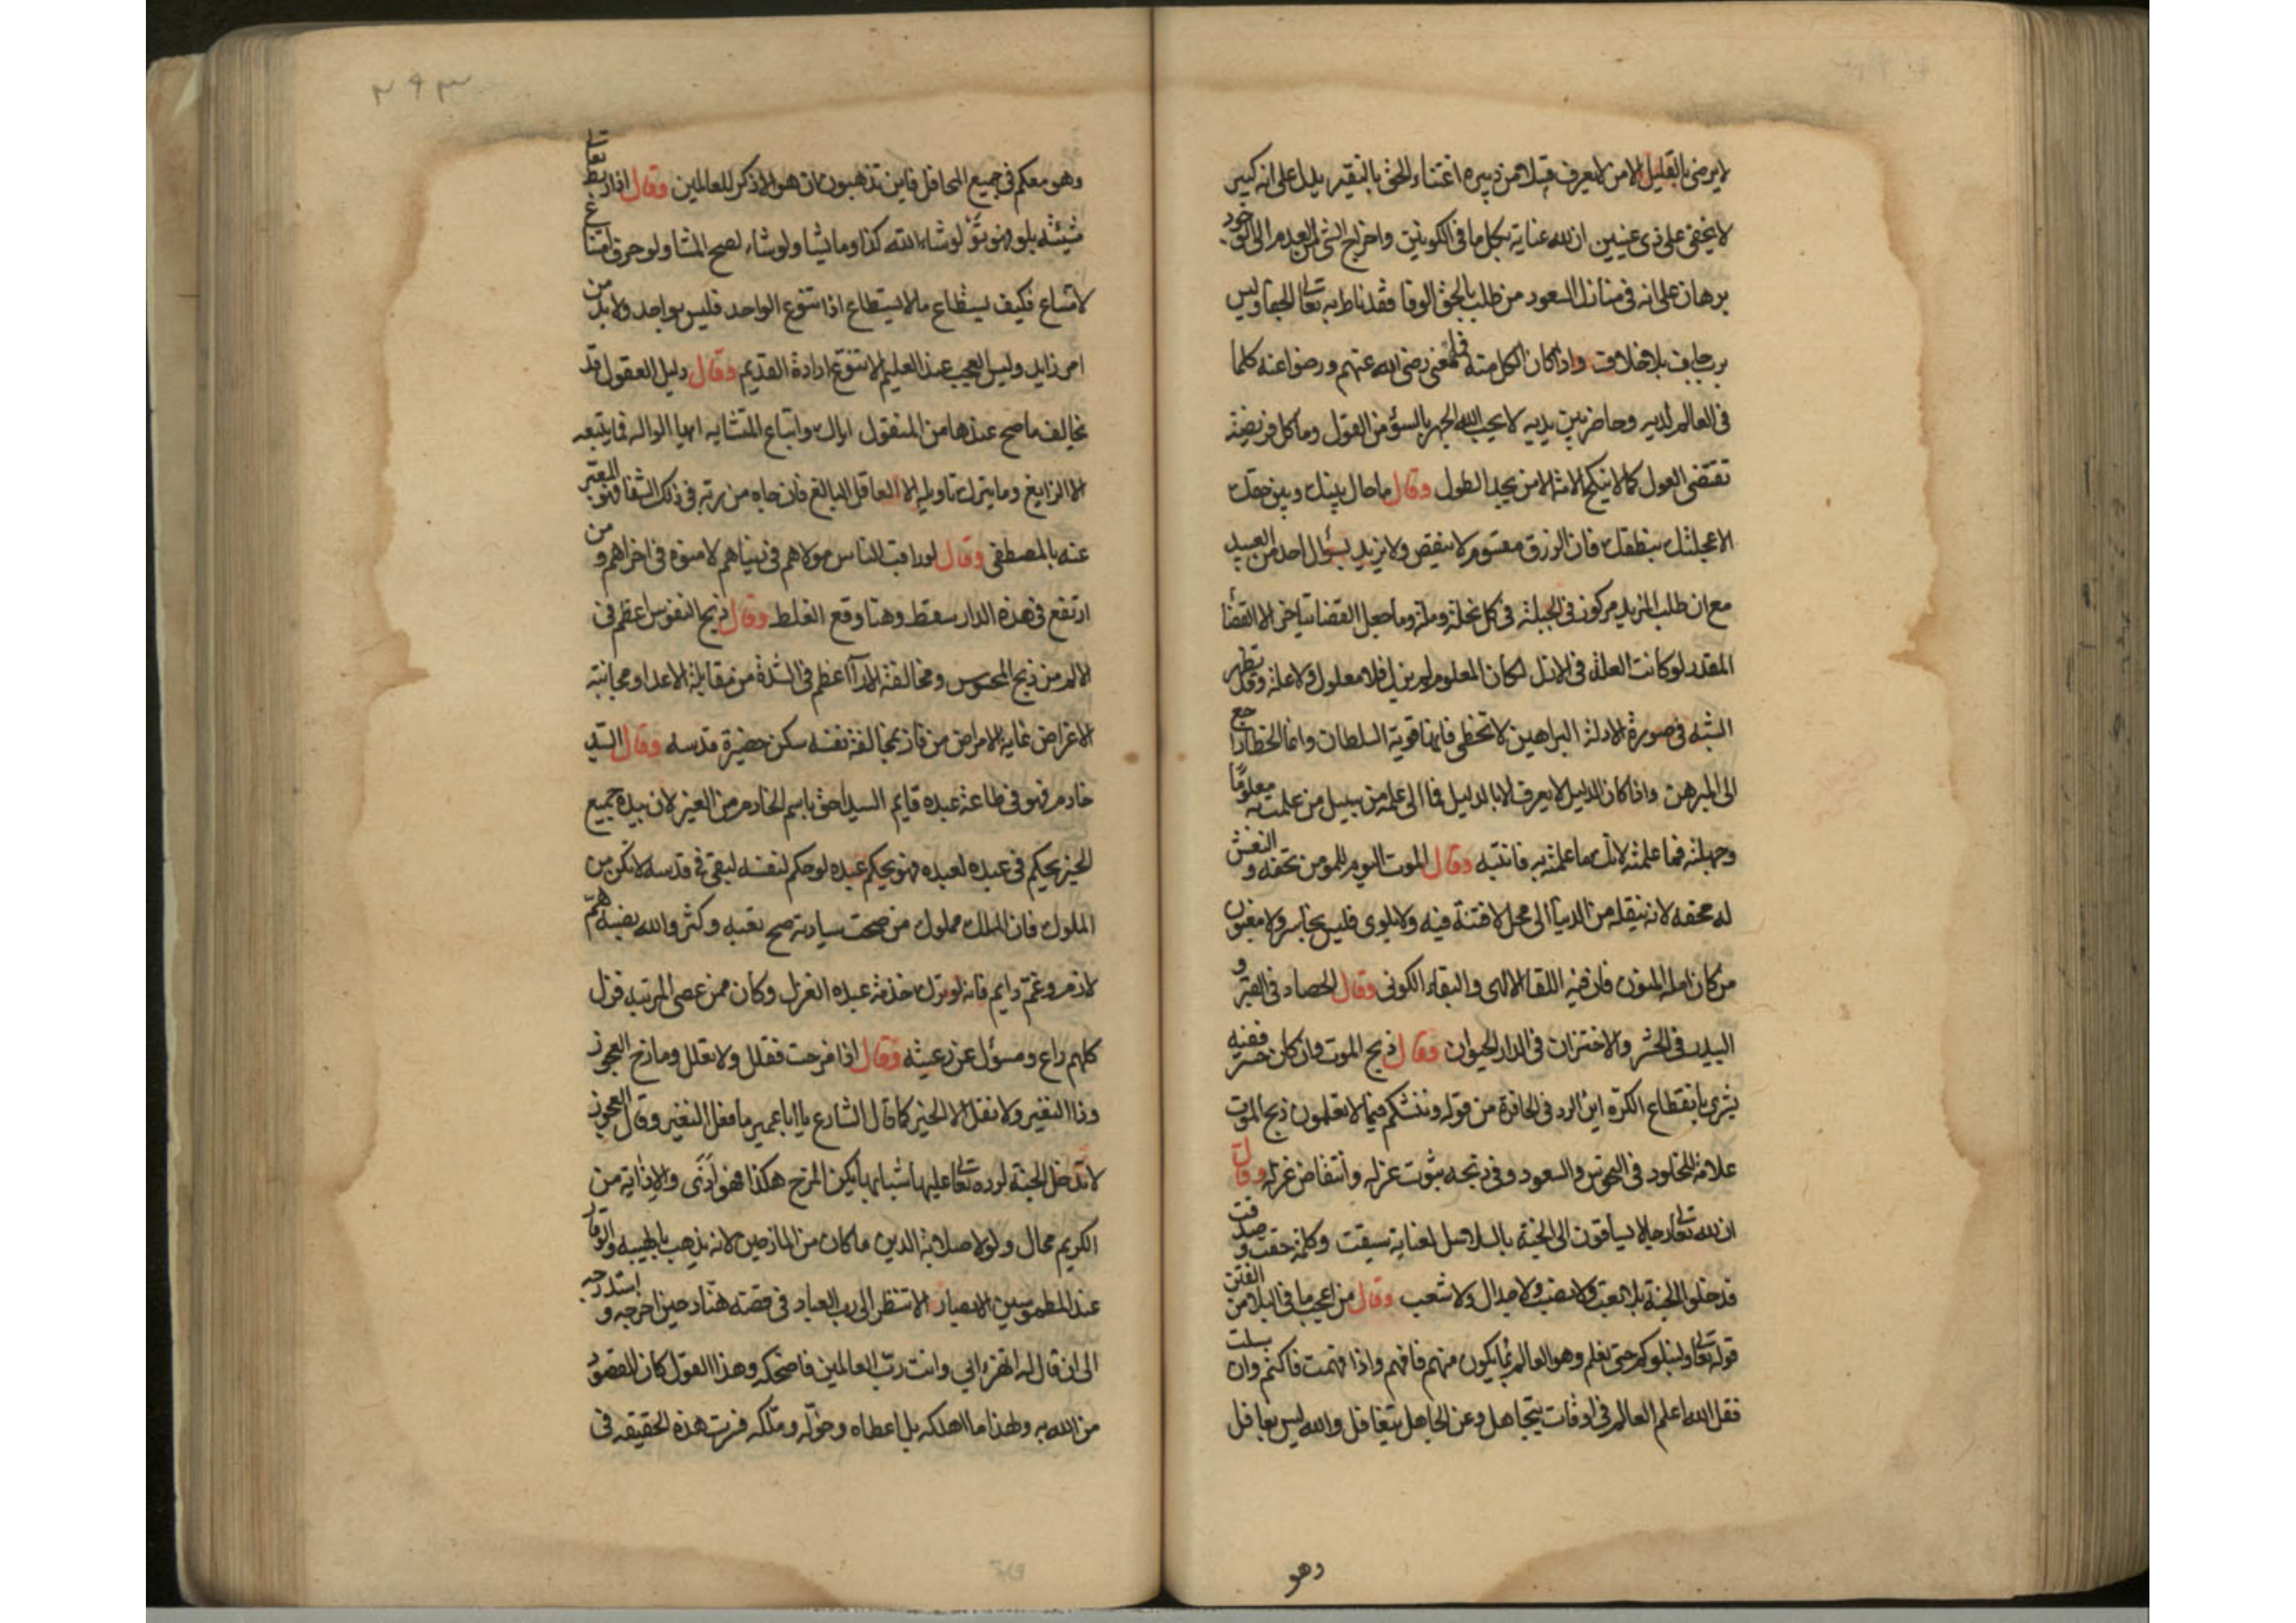 لا يرضى بالقليل الا من لا يعرف قبيلا من دبيره اعتناء الحق بالنقير دليل على انه كبير
لا يخفى على ذى عينين ان لله عناية بكل ما فى الكونين واخراج الشئ من العدم الى الوجود
برهان على انه فى منازل السعود من طلب بالحق الوفا فقد ناط به تعالى الجفا وليس
برب جاف بلا خلاف واذا كان الكل منه فلمعنى رضى الله عنهم ورضوا عنه كلما
فى العالم لديه وحاضر بين يديه لا يحب الله الجهر بالسؤ من القول وما كل فريضة
تقتضى العول كما لا ينكح الامة الا من يجد الطول وقال ما حال بينك وبين حقك
الا عجلتك بنطقك فان الرزق مقسوم لا ينقص ولا يزيد بسؤال احد من العبيد
مع ان طلب المزيد مركوز فى الجبلة فى كل نحلة وملة وما جعل القضا يتاخر الا القضأ
المقدر لو كانت العلة فى الازل لكان المعلوم لم يزل فلا معلول ولا علة وقد تظهر
الشبه فى صورة الادلة البراهين لا تخطى فانها قوية السلطان وانما الخطا راجع
الى المبرهن واذا كان الدليل لا يعرف الا بالدليل فما الى علمه من سبيل من علمت به معلومًا
وجهلته فما علمته لانك ما علمته به فانتبه وقال الموت اليوم للمومن تحفه والنعش
له محفه لانه ينقله من الدنيا الى محل لا فتنة فيه ولا بلوى فليس بخاسر ولا مغبون
من كان امله المنون فان فيه اللقا الالهى والبقاء الكونى وقال الحصاد فى القبر و
البيدر فى الحشر والاختزان فى الدار الحيوان وقال ذبح الموت وان كان حسرة ففيه
بشرى بانقطاع الكرّه اين الرد فى الحافرة من قوله وننشئكم فيما لا تعلمون ذبح الموت
علامة الخلود فى النحوس والسعود وفى ذبحه ثبوت عزله وانتقاض غزله وقال
ان لله تعالى رجالا يساقون الى الجنة بالسلاسل لعناية سبقت وكلمة حقت وصدقت
فدخلوا الجنة بلا تعب ولا نصب ولا جدال ولا شعب وقال من اعجب ما فى البلا من الفتن
قوله تعالى ولنبلونكم حتى نعلم وهو العالم بما يكون منهم فافهم واذا فهمت فاكتم وان سئلت
فقل الله اعلم العالم فى اوقات يتجاهل وعن الجاهل يتغافل والله ليس بغافل
وهو
٢٩٣
وهو معكم فى جميع المحافل فاين تذهبون ان هو الا ذكر للعالمين وقال اذا ربط تعالى
مشيئته بلو فهو لو شاء الله كذا وما يشا ولو شاء لصح المشا ولو حرف امتناع
لامتناع فكيف يستطاع ما لا يستطاع اذا تنوع الواحد فليس بواحد ولا بد من
امر زايد وليس العجب عند العليم الا تنوع ارادة القديم وقال دليل العقول قد
يخالف ما صح عندها من المنقول اياك واتباع المتشابه ايها الواله فما يتبعه
الا الزايغ وما يترك تاويله الا العاقل البالغ فان جاه من ربه فى ذلك الشفا فهو المعبر
عنه بالمصطفى وقال لو راقب الناس مولاهم فى دنياهم لامنوه فى اخراهم ومن
ارتفع فى هذه الدار سقط وهنا وقع الغلط وقال ذبح النفوس اعظم فى
الالم من ذبح المحسوس ومخالفة الارآ اعظم فى الشدة من مقابلة الاعدا ومجانبة
الاغراض غاية الامراض من فاز بمخالفة نفسه سكن حضيرة قدسه وقال السيد
خادم فهو فى طاعة عبده قايم السيد احق باسم الخادم من الغير لان بيده جميع
الخير يحكم فى عبيده لعبده فهو بحكم عبيده لو حكم لنفسه لبقى فى قدسه لا تكن من
الملوك فان الملك مملوك من صحت سيادته صح تعبه وكثر والله نصبه همّ
لازم وغمّ دايم فانه لو ترك خدمة عبده انعزل وكان ممن عصى المرتبه فزل
كلهم راع ومسؤل عن رعيته وقال اذا مزحت فقلل ولا تعلل ومازح العجوز
وذا النغير ولا تقل الا الخير كما قال الشارع يا ابا عمير ما فعل النغير وقال العجوز
لا تدخل الجنة لرده تعالى عليها شبابها يكن المزح هكذا فهو اذًى والاذاية من
الكريم محال ولولا صلابة الدين ما كان من المازحين لانه يذهب بالهيبه والوقار
عند المطموسين الابصار الا تنظر الى رب العباد فى قصة هناد حين اخرجه واستدرجه
الى ان قال له اتهزء ابى وانت ربّ العالمين فاضحكه وهذا القول كان المقصود
من الله به ولهذا ما اهلكه بل اعطاه وخوّله وملكه فسرت هذه الحقيقه فى